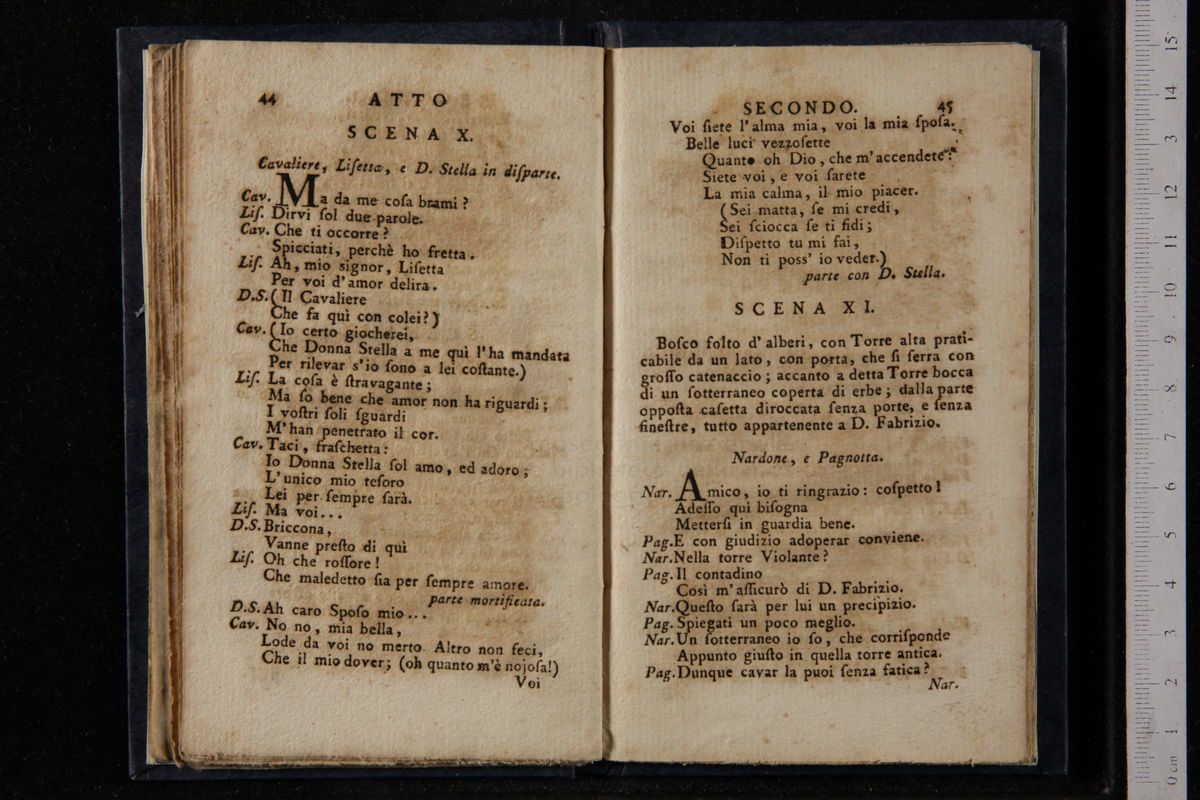 44 ATTO
SCENA X.
Cavaliere, Liſetta, e D. Stella in diſparte.
Cav. Ma da me coſa brami ?
Liſ. Dirvi ſol due parole.
Cav. Che ti occorre ?
Spicciati, perchè ho fretta.
Liſ. Ah, mio signor, Liſetta
Per voi d'amor delira.
D.S. ( Il Cavaliere
Che fa quì con colei? )
Cav. (Io certo giocherei,
Che Donna Stella a me quì l'ha mandata
Per rilevar s'io ſono a lei coſtante.)
Liſ. La coſa è ſtravagante ;
Ma ſo bene che amor non ha riguardi ;
I voſtri ſoli ſguardi
M'han penetrato il cor.
Cav. Taci, fraſchetta :
Io Donna Stella ſol amo, ed adoro ;
L'unico mio teſoro
Lei per ſempre ſarà.
Liſ. Ma voi...
D.S. Briccona,
Vanne preſto di quì
Liſ. Oh che roſſore !
Che maledetto ſia per ſempre amore.
parte mortificata.
D.S. Ah caro Spoſo mio...
Cav. No no, mia bella,
Lode da voi no merto. Altro non feci,
Che il mio dover; (oh quanto m'è nojoſa!)
Voi
SECONDO. 45
Voi ſiete l'alma mia, voi la mia ſpoſa.
Belle luci vezzoſette
Quanto oh Dio, che m'accendete !
Siete voi, e voi ſarete
La mia calma, il mio piacer.
( Sei matta, ſe mi credi,
Sei ſciocca ſe ti fidi ;
Diſpetto tu mi fai,
Non ti poss' io veder.)
parte con D. Stella.
SCENA XI.
Boſco folto d' alberi, con Torre alta prati-
cabile da un lato, con porta, che ſi ſerra con
groſſo catenaccio ; accanto a detta Torre bocca
di un ſotterraneo coperta di erbe ; dalla parte
oppoſta caſetta diroccata ſenza porte, e ſenza
fineſtre, tutto appartenente a D. Fabrizio.
Nardone, e Pagnotta.
Nar. Amico, io ti ringrazio : coſpetto !
Adeſſo quì biſogna
Metterſi in guardia bene.
Pag. E con giudizio adoperar conviene.
Nar. Nella torre Violante ?
Pag. Il contadino
Così m'aſſicurò di D. Fabrizio.
Nar. Queſto ſarà per lui un precipizio.
Pag. Spiegati un poco meglio.
Nar. Un ſotterraneo io ſo, che corriſponde
Appunto giuſto in quella torre antica.
Pag. Dunque cavar la puoi ſenza fatica ?
Nar.
0 cm 1 2 3 4 5 6 7 8 9 10 11 12 13 14 15